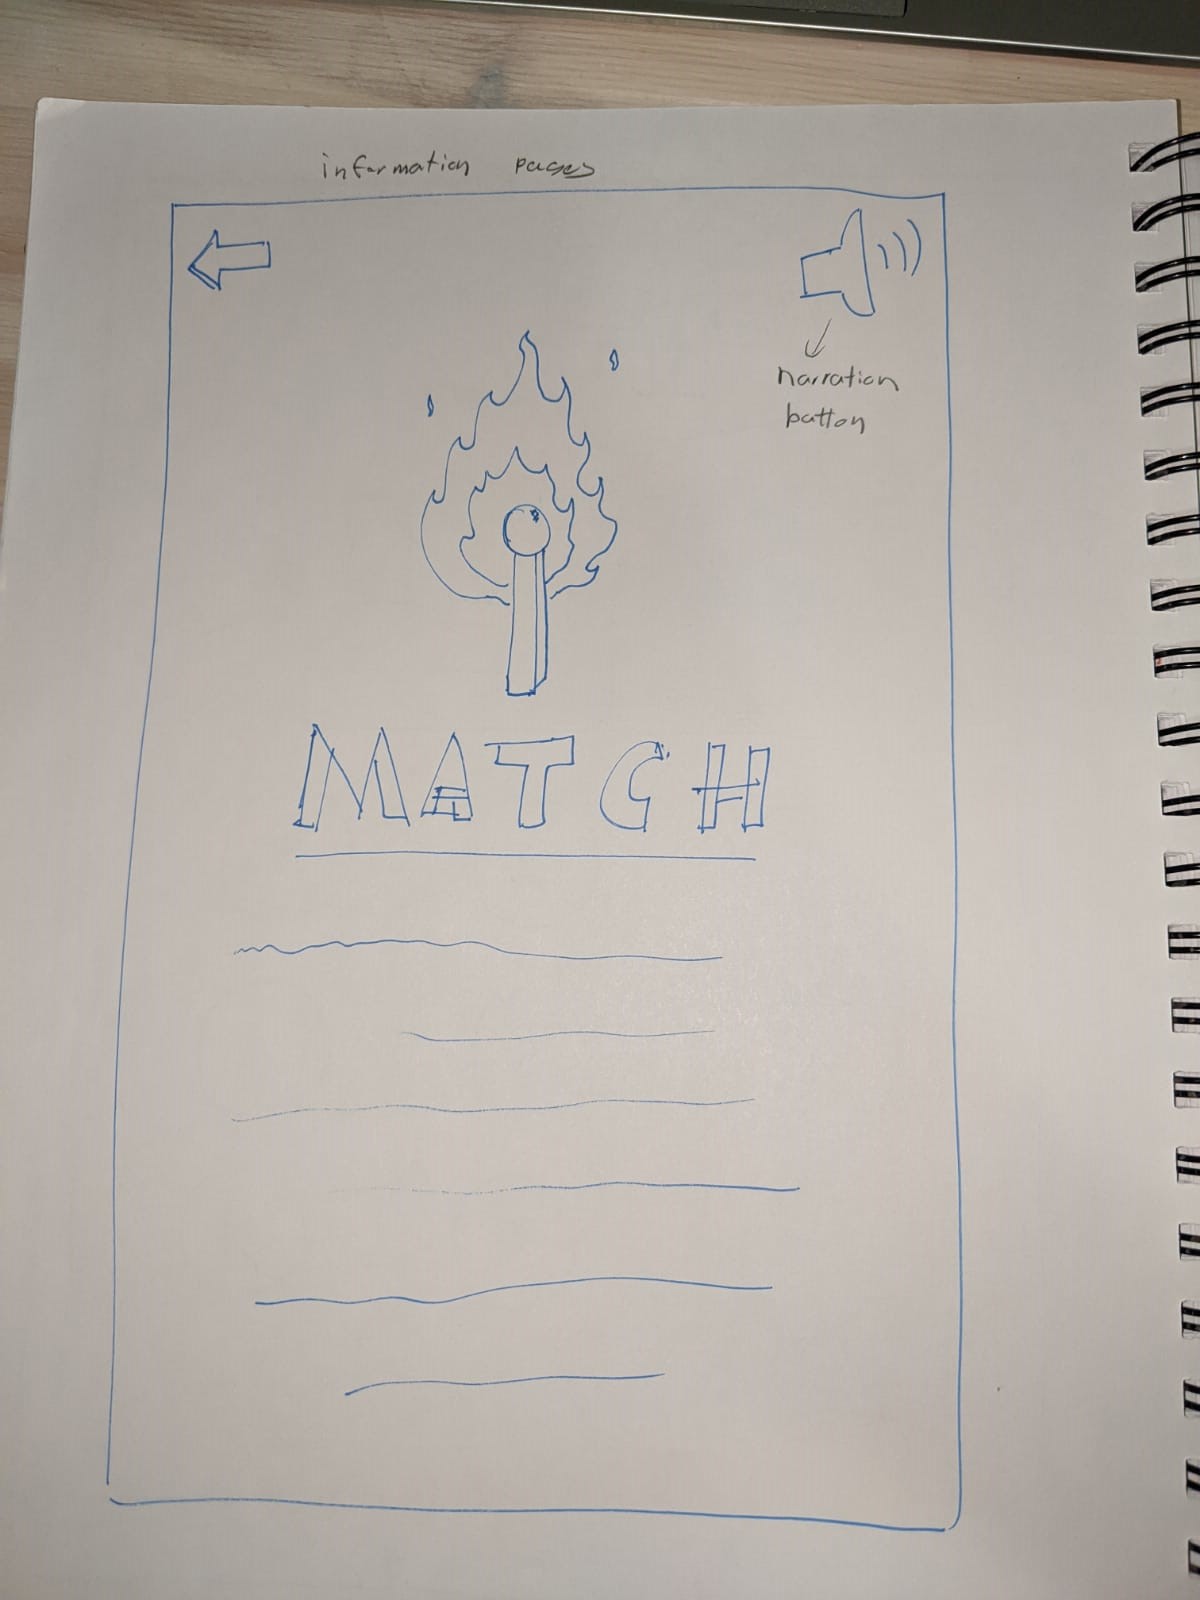 information pages
narration
button
MATCH